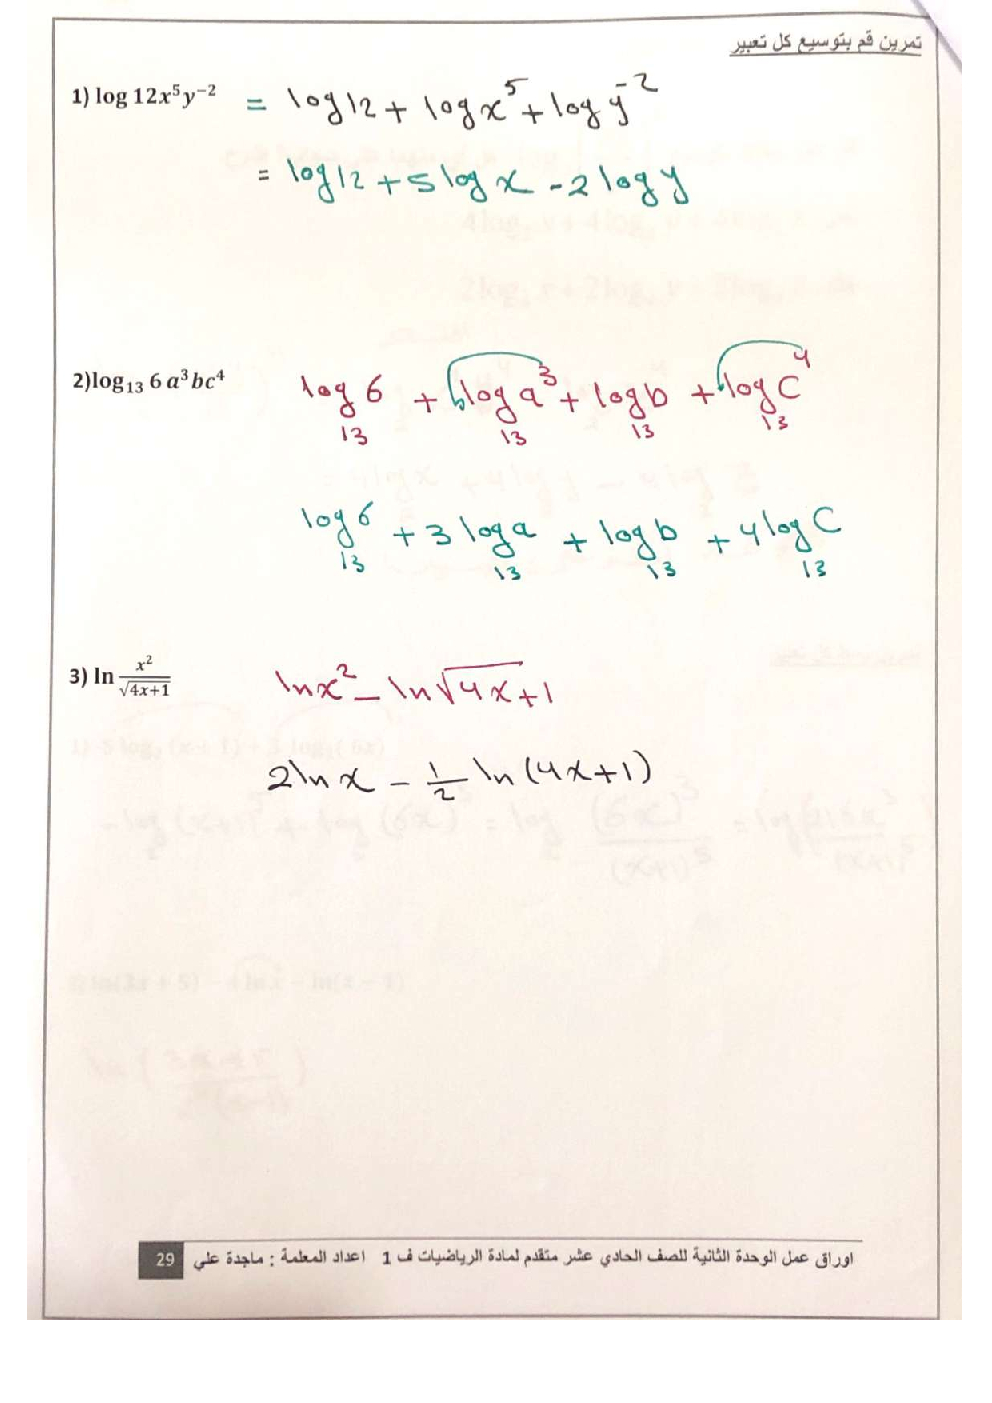 تمرين قم بتوسيع كل تعبير
1) log 12x⁵y⁻² = log 12 + log x⁵ + log y⁻²
= log 12 + 5 log x - 2 log y
2) log₁₃ 6 a³bc⁴ log₁₃ 6 + log₁₃ a³ + log₁₃ b + log₁₃ C⁴
log₁₃ 6 + 3 log₁₃ a + log₁₃ b + 4 log₁₃ C
3) ln x²/√(4x+1) ln x² - ln √(4x+1)
2 ln x - 1/2 ln (4x+1)
اوراق عمل الوحدة الثانية للصف الحادي عشر متقدم لمادة الرياضيات ف 1 اعداد المعلمة : ماجدة علي 29